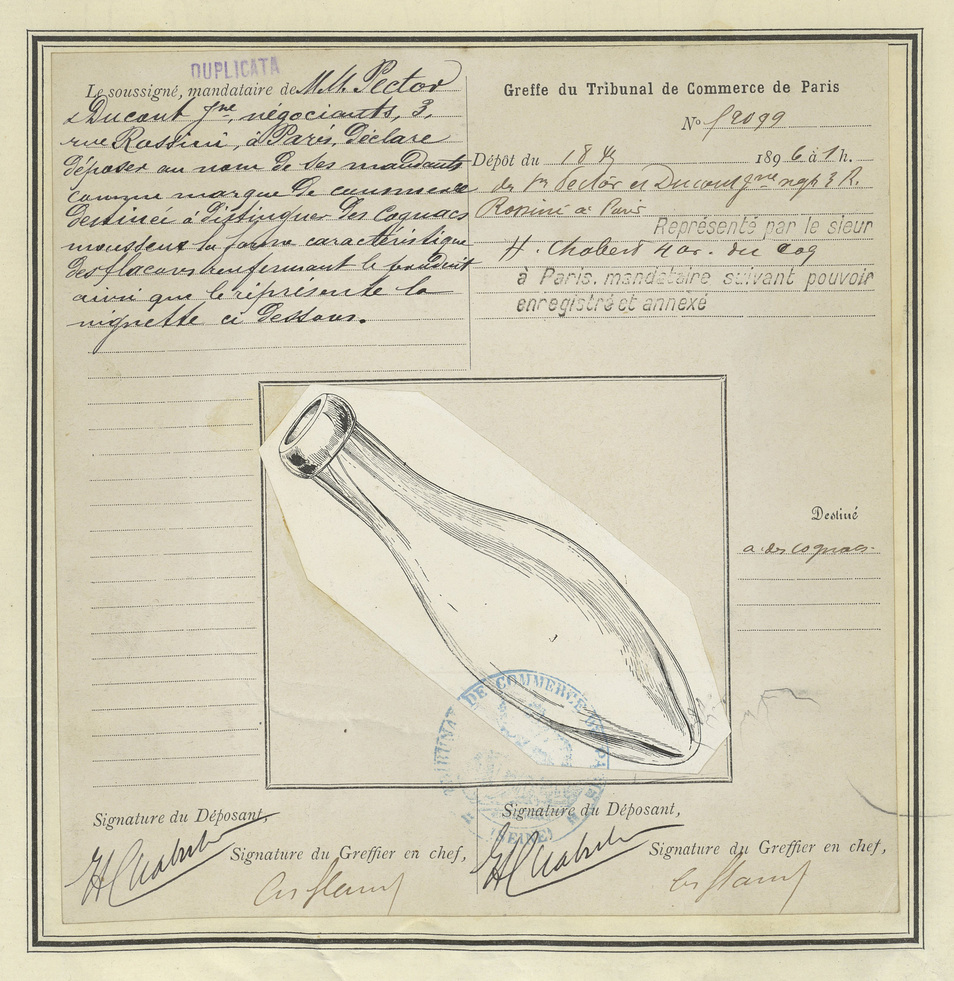 DUPLICATA
Le soussigné, mandataire de MM. Pector
& Ducout Jne, négociants, 3,
rue Rossini, à Paris, déclare
déposer au nom de ses mandants
comme marque de commerce
destinée à distinguer des Cognacs
mousseux la forme caractéristique
des flacons renfermant le produit
ainsi que le représente la
vignette ci dessous.
Greffe du Tribunal de Commerce de Paris
No
Dépôt du 18 1896 à 1 h.
de Srs Pector et Ducout jne ngts 3 R.
Rossini à Paris
Représenté par le sieur
H. Chabert 4 av. du Coq
à Paris, mandataire suivant pouvoir
enregistré et annexé
Destiné
à des cognacs.
TRIBUNAL DE COMMERCE DE
(SEINE)
Signature du Déposant,
Signature du Greffier en chef,
Signature du Déposant,
Signature du Greffier en chef,